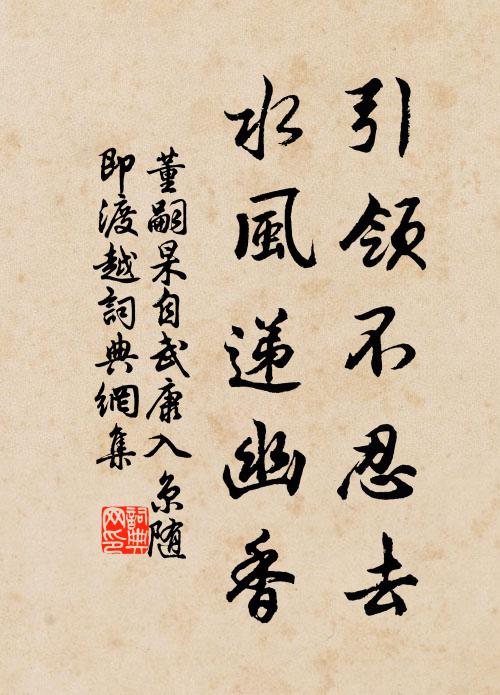 引領不忍去
水風遞幽香
董嗣杲自武康入京随
即渡越詞典網集
詞典
网印